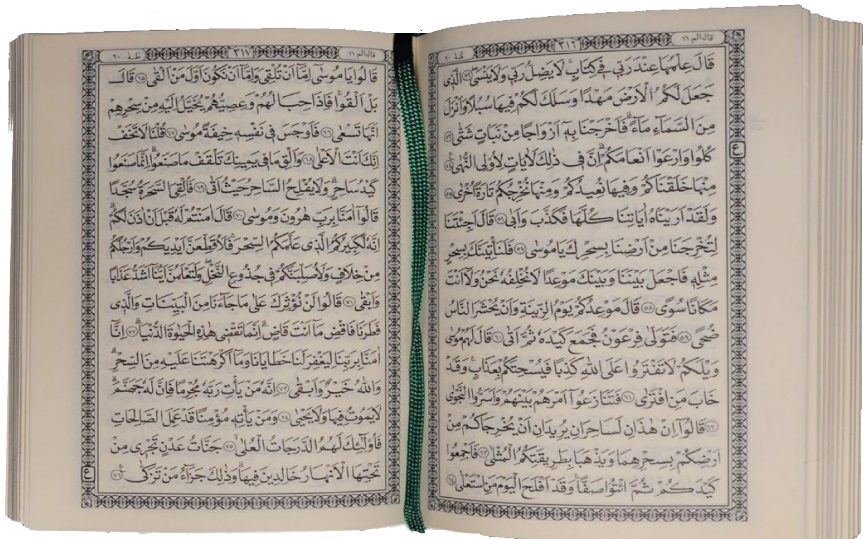 قال الم ١٦ ٣١٦ طه ٢٠
قَالَ عِلْمُهَا عِنْدَ رَبّى فى كِتَابٍ لَا يَضِلُّ رَبّى وَلَا يَنْسٰى ٥٢ اَلَّذى
جَعَلَ لَكُمُ الْاَرْضَ مَهْدًا وَسَلَكَ لَكُمْ فيهَا سُبُلًا وَاَنْزَلَ
مِنَ السَّمَاءِ مَاءً فَاَخْرَجْنَا بِه اَزْوَاجًا مِنْ نَبَاتٍ شَتّٰى ٥٣
كُلُوا وَارْعَوْا اَنْعَامَكُمْ اِنَّ فى ذٰلِكَ لَاٰيَاتٍ لِاُولِى النُّهٰى ٥٤
مِنْهَا خَلَقْنَاكُمْ وَفيهَا نُعيدُكُمْ وَمِنْهَا نُخْرِجُكُمْ تَارَةً اُخْرٰى ٥٥
وَلَقَدْ اَرَيْنَاهُ اٰيَاتِنَا كُلَّهَا فَكَذَّبَ وَاَبٰى ٥٦ قَالَ اَجِئْتَنَا
لِتُخْرِجَنَا مِنْ اَرْضِنَا بِسِحْرِكَ يَا مُوسٰى ٥٧ فَلَنَأْتِيَنَّكَ بِسِحْرٍ
مِثْلِه فَاجْعَلْ بَيْنَنَا وَبَيْنَكَ مَوْعِدًا لَا نُخْلِفُهُ نَحْنُ وَلَا اَنْتَ
مَكَانًا سُوًى ٥٨ قَالَ مَوْعِدُكُمْ يَوْمُ الزّينَةِ وَاَنْ يُحْشَرَ النَّاسُ
ضُحًى ٥٩ فَتَوَلّٰى فِرْعَوْنُ فَجَمَعَ كَيْدَهُ ثُمَّ اَتٰى ٦٠ قَالَ لَهُمْ مُوسٰى
وَيْلَكُمْ لَا تَفْتَرُوا عَلَى اللّٰهِ كَذِبًا فَيُسْحِتَكُمْ بِعَذَابٍ وَقَدْ
خَابَ مَنِ افْتَرٰى ٦١ فَتَنَازَعُوا اَمْرَهُمْ بَيْنَهُمْ وَاَسَرُّوا النَّجْوٰى
٦٢ قَالُوا اِنْ هٰذَانِ لَسَاحِرَانِ يُريدَانِ اَنْ يُخْرِجَاكُمْ مِنْ
اَرْضِكُمْ بِسِحْرِهِمَا وَيَذْهَبَا بِطَريقَتِكُمُ الْمُثْلٰى ٦٣ فَاَجْمِعُوا
كَيْدَكُمْ ثُمَّ ائْتُوا صَفًّا وَقَدْ اَفْلَحَ الْيَوْمَ مَنِ اسْتَعْلٰى ٦٤
ع
قال الم ١٦ ٣١٧ طه ٢٠
قَالُوا يَا مُوسٰى اِمَّا اَنْ تُلْقِىَ وَاِمَّا اَنْ نَكُونَ اَوَّلَ مَنْ اَلْقٰى ٦٥ قَالَ
بَلْ اَلْقُوا فَاِذَا حِبَالُهُمْ وَعِصِيُّهُمْ يُخَيَّلُ اِلَيْهِ مِنْ سِحْرِهِمْ
اَنَّهَا تَسْعٰى ٦٦ فَاَوْجَسَ فى نَفْسِه خيفَةً مُوسٰى ٦٧ قُلْنَا لَا تَخَفْ
اِنَّكَ اَنْتَ الْاَعْلٰى ٦٨ وَاَلْقِ مَا فى يَمينِكَ تَلْقَفْ مَا صَنَعُوا اِنَّمَا صَنَعُوا
كَيْدُ سَاحِرٍ وَلَا يُفْلِحُ السَّاحِرُ حَيْثُ اَتٰى ٦٩ فَاُلْقِىَ السَّحَرَةُ سُجَّدًا
قَالُوا اٰمَنَّا بِرَبِّ هٰرُونَ وَمُوسٰى ٧٠ قَالَ اٰمَنْتُمْ لَهُ قَبْلَ اَنْ اٰذَنَ لَكُمْ
اِنَّهُ لَكَبيرُكُمُ الَّذى عَلَّمَكُمُ السِّحْرَ فَلَاُقَطِّعَنَّ اَيْدِيَكُمْ وَاَرْجُلَكُمْ
مِنْ خِلَافٍ وَلَاُصَلِّبَنَّكُمْ فى جُذُوعِ النَّخْلِ وَلَتَعْلَمُنَّ اَيُّنَا اَشَدُّ عَذَابًا
وَاَبْقٰى ٧١ قَالُوا لَنْ نُؤْثِرَكَ عَلٰى مَا جَاءَنَا مِنَ الْبَيِّنَاتِ وَالَّذى
فَطَرَنَا فَاقْضِ مَا اَنْتَ قَاضٍ اِنَّمَا تَقْضى هٰذِهِ الْحَيٰوةَ الدُّنْيَا ٧٢ اِنَّا
اٰمَنَّا بِرَبِّنَا لِيَغْفِرَ لَنَا خَطَايَانَا وَمَا اَكْرَهْتَنَا عَلَيْهِ مِنَ السِّحْرِ
وَاللّٰهُ خَيْرٌ وَاَبْقٰى ٧٣ اِنَّهُ مَنْ يَأْتِ رَبَّهُ مُجْرِمًا فَاِنَّ لَهُ جَهَنَّمَ
لَا يَمُوتُ فيهَا وَلَا يَحْيٰى ٧٤ وَمَنْ يَأْتِه مُؤْمِنًا قَدْ عَمِلَ الصَّالِحَاتِ
فَاُولٰئِكَ لَهُمُ الدَّرَجَاتُ الْعُلٰى ٧٥ جَنَّاتُ عَدْنٍ تَجْرى مِنْ
تَحْتِهَا الْاَنْهَارُ خَالِدينَ فيهَا وَذٰلِكَ جَزَاءُ مَنْ تَزَكّٰى ٧٦
ع